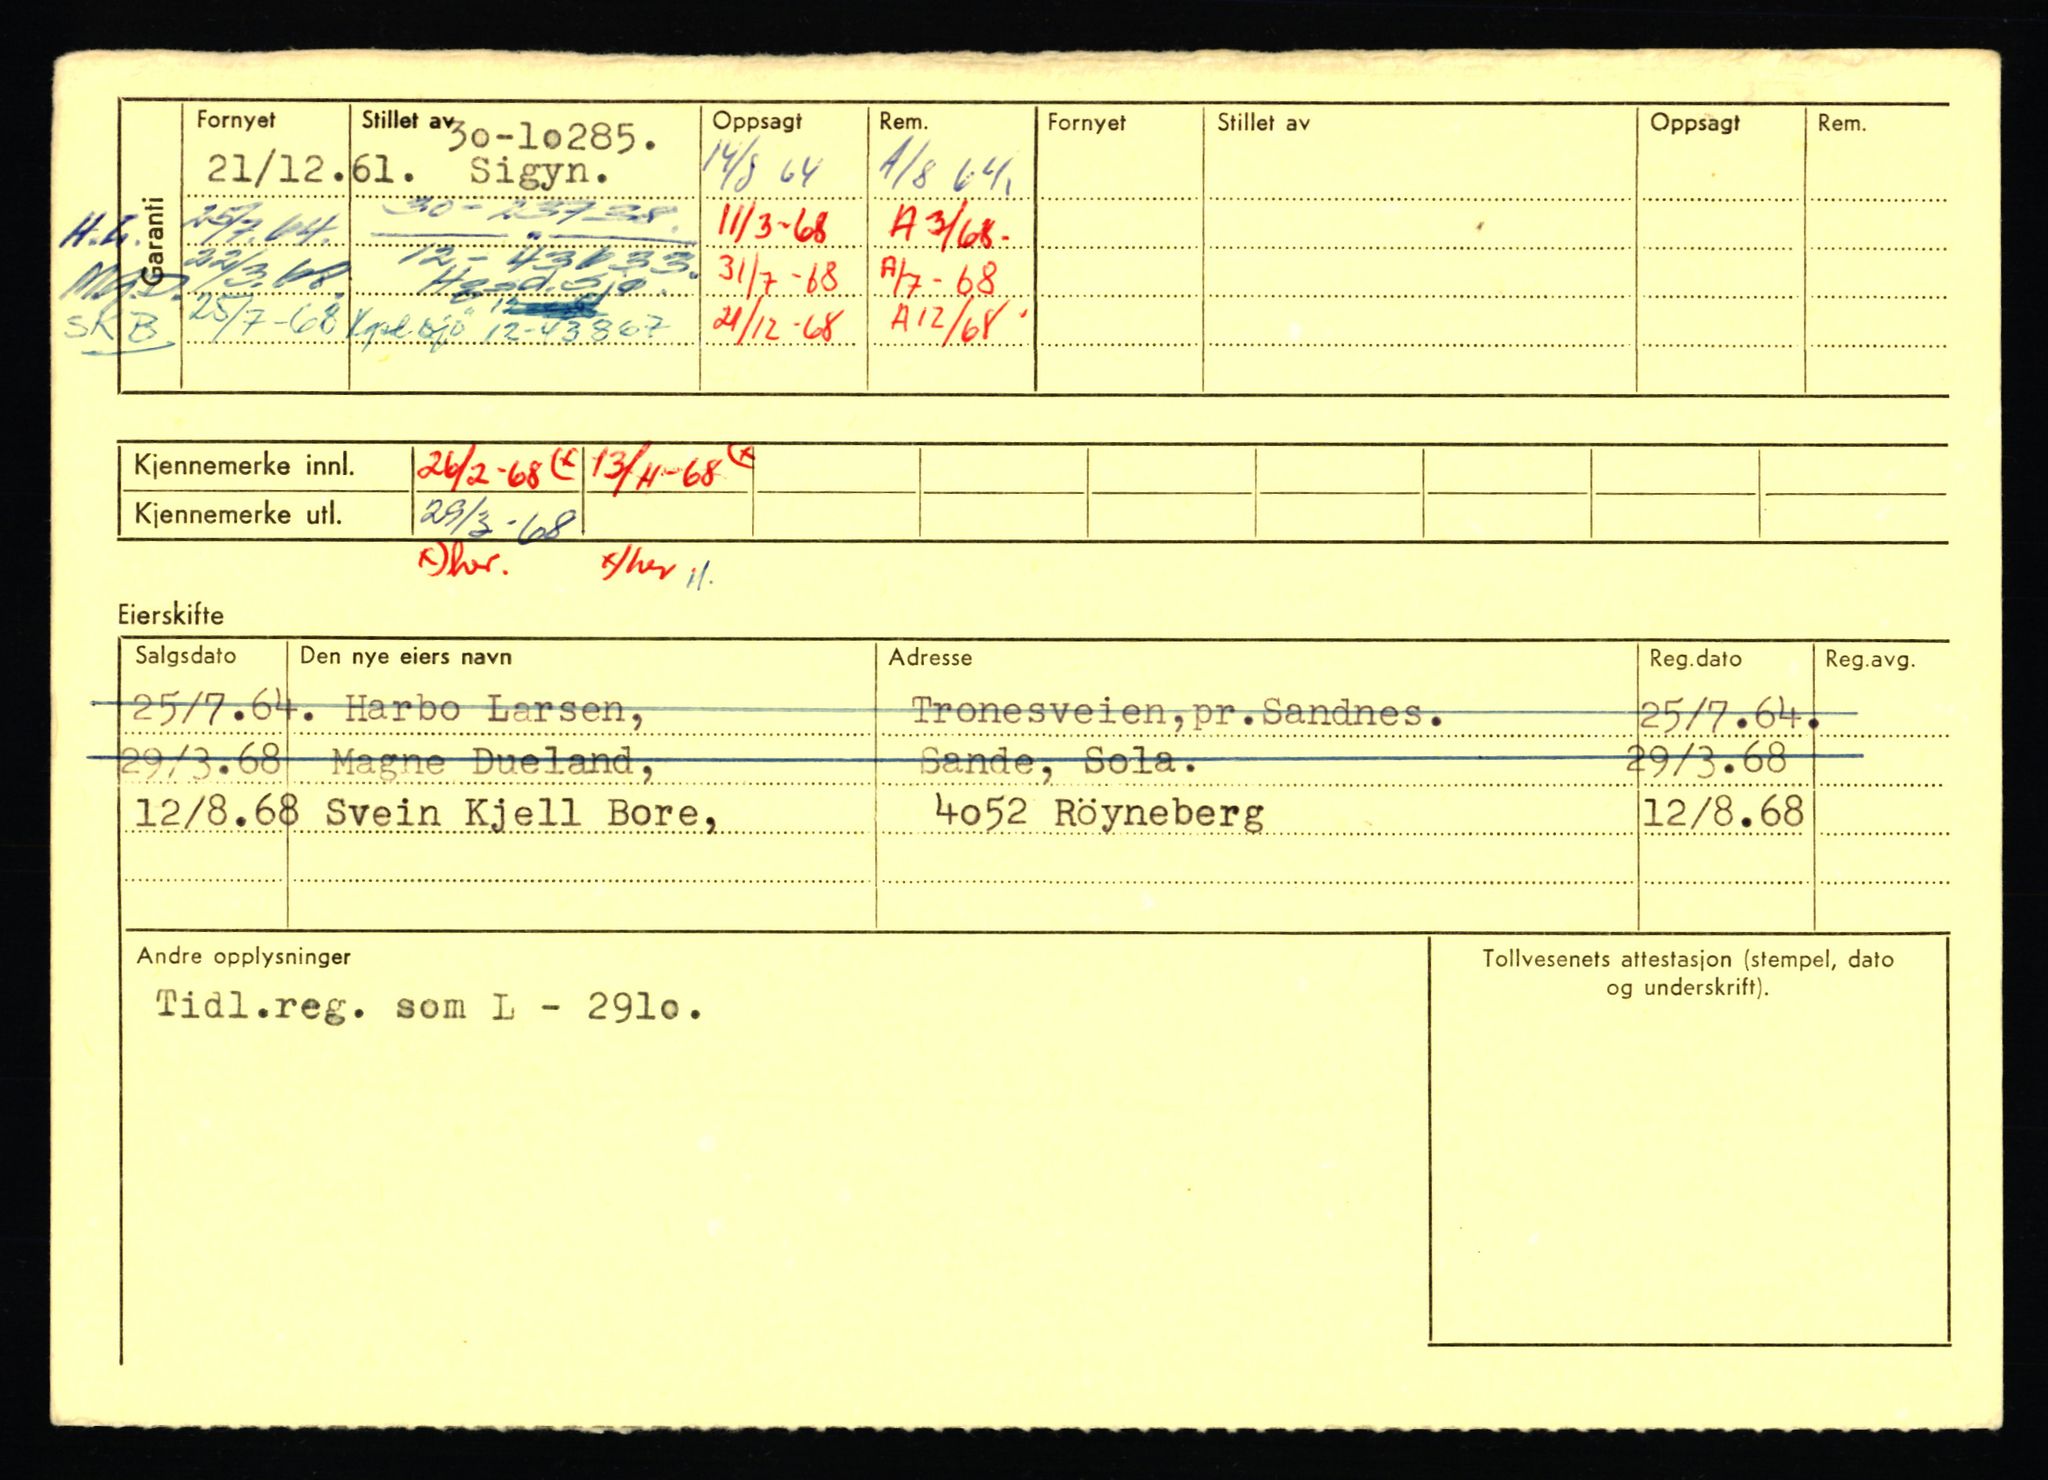 Garanti
Fornyet Stillet av Oppsagt Rem. Fornyet Stillet av Oppsagt Rem.
30-10285.
21/12.61. Sigyn. 14/8 64 A/8 64.
H.L. 25/7.64. 30-23738. 11/3-68 A 3/68.
22/3.68. 12-43633. 31/7-68 A/7-68
SKB 25/7-68 12-43867 21/12-68 A12/68
Kjennemerke innl. 26/2-68 (x 13/11-68 (x
Kjennemerke utl. 29/3-68
x) her. x) her
Eierskifte
Salgsdato Den nye eiers navn Adresse Reg.dato Reg.avg.
25/7.64. Harbo Larsen, Tronesveien,pr.Sandnes. 25/7.64.
29/3.68 Magne Dueland, Sande, Sola. 29/3.68
12/8.68 Svein Kjell Bore, 4o52 Röyneberg 12/8.68
Andre opplysninger
Tollvesenets attestasjon (stempel, dato
og underskrift).
Tidl.reg. som L - 291o.